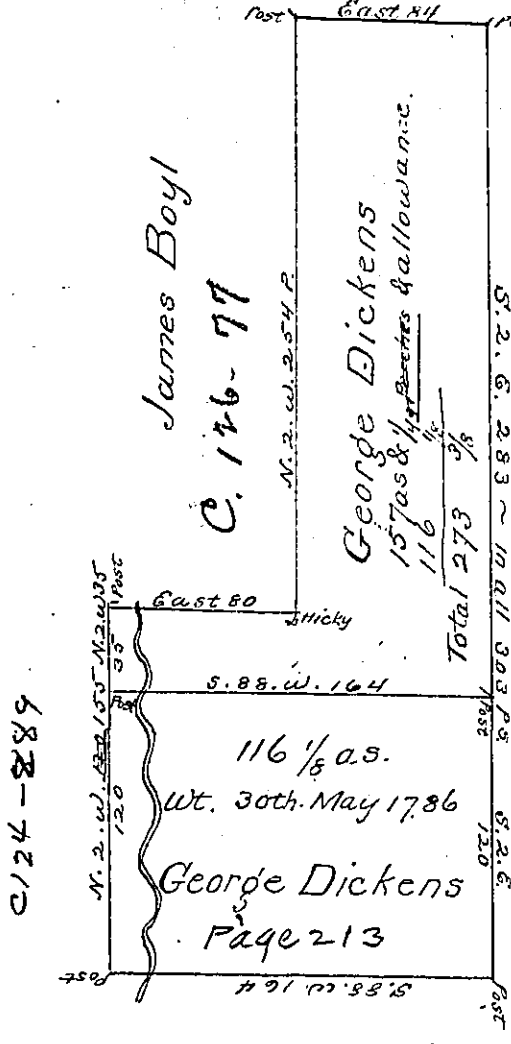 Post
East 84
James Boyl
C. 126-77
N. 2. W. 254 P.
George Dickens
157 as & 1/4 Perches & allowance.
116 1/8
Total 273 3/8
S. 2. E. 283 ~ in all 303 Ps.
N. 2. W. 35
Post
East 80
Hicky
35
N. 2. W. 155
Post
S. 88. W. 164
Post
120
116 1/8 as.
Wt. 30th. May 1786
George Dickens
Page 213
S. 2. E.
120
Post
S. 88. W. 164
Post
C124-289